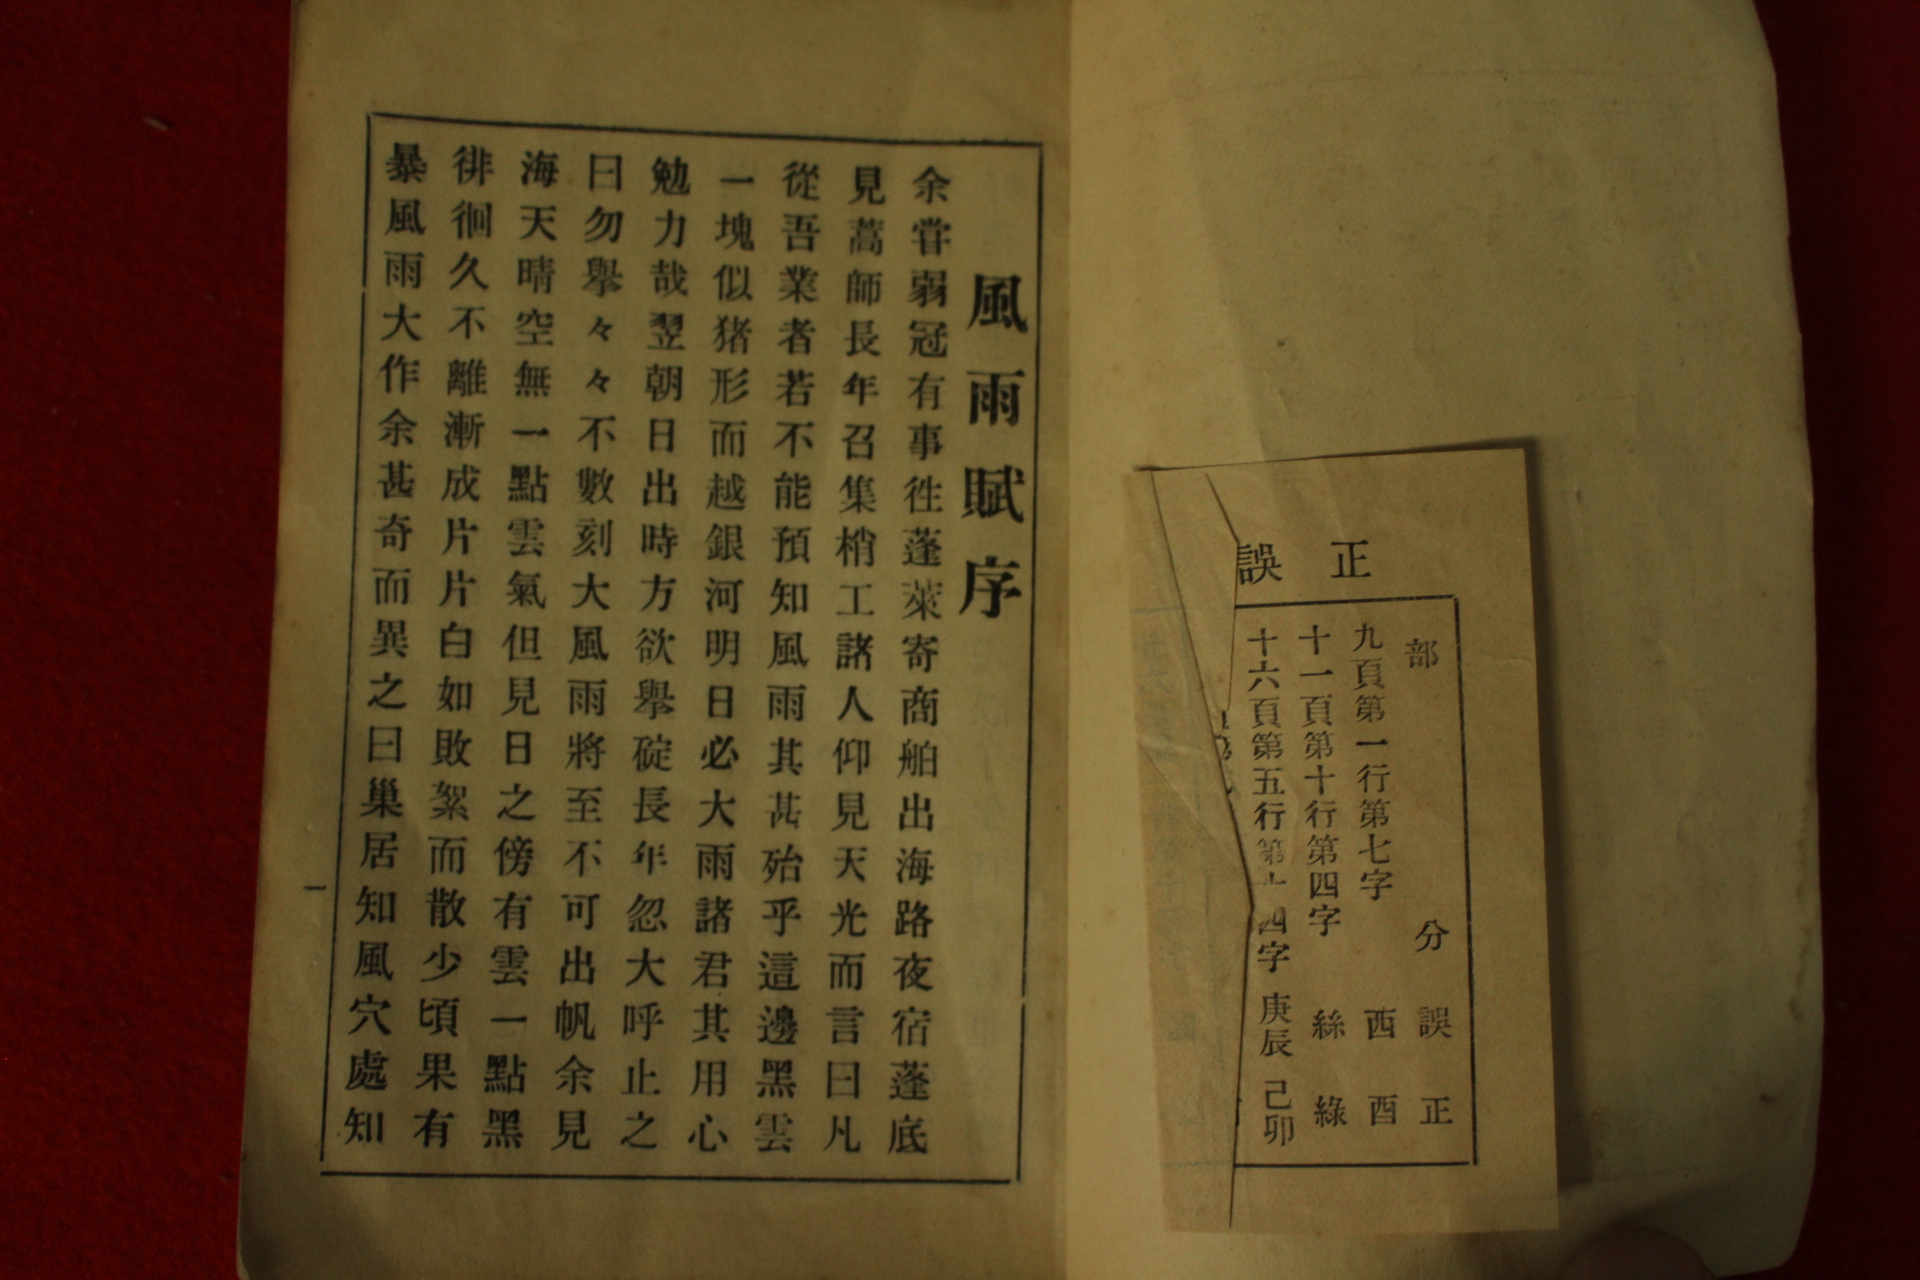 正誤
部分誤正
九頁第一行第七字 西 酉
十一頁第十行第四字 絲 綠
十六頁第五行第十四字 庚辰 己卯
風雨賦序
余甞弱冠有事徃蓬萊寄商舶出海路夜宿蓬底
見蒿師長年召集梢工諸人仰見天光而言曰凡
從吾業者若不能預知風雨其甚殆乎這邊黑雲
一塊似猪形而越銀河明日必大雨諸君其用心
勉力哉翌朝日出時方欲擧碇長年忽大呼止之
曰勿擧々々不數刻大風雨將至不可出帆余見
海天晴空無一點雲氣但見日之傍有雲一點黑
徘徊久不離漸成片片白如敗絮而散少頃果有
暴風雨大作余甚奇而異之曰巢居知風穴處知
一